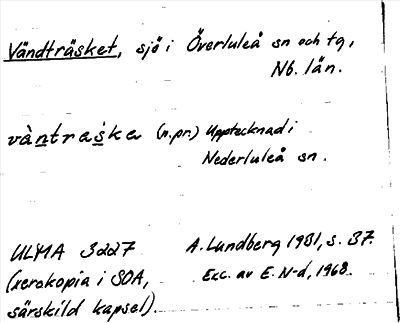 Vändträsket, sjö i Överluleå sn och tg,
Nb. län.
vàntraska (n.pr.) Upptecknad i
Nederluleå sn.
ULMA 3227 A. Lundberg 1931, s. 37.
(xerokopia i SOA, Exc. av E. N-d, 1968.
särskild kapsel).